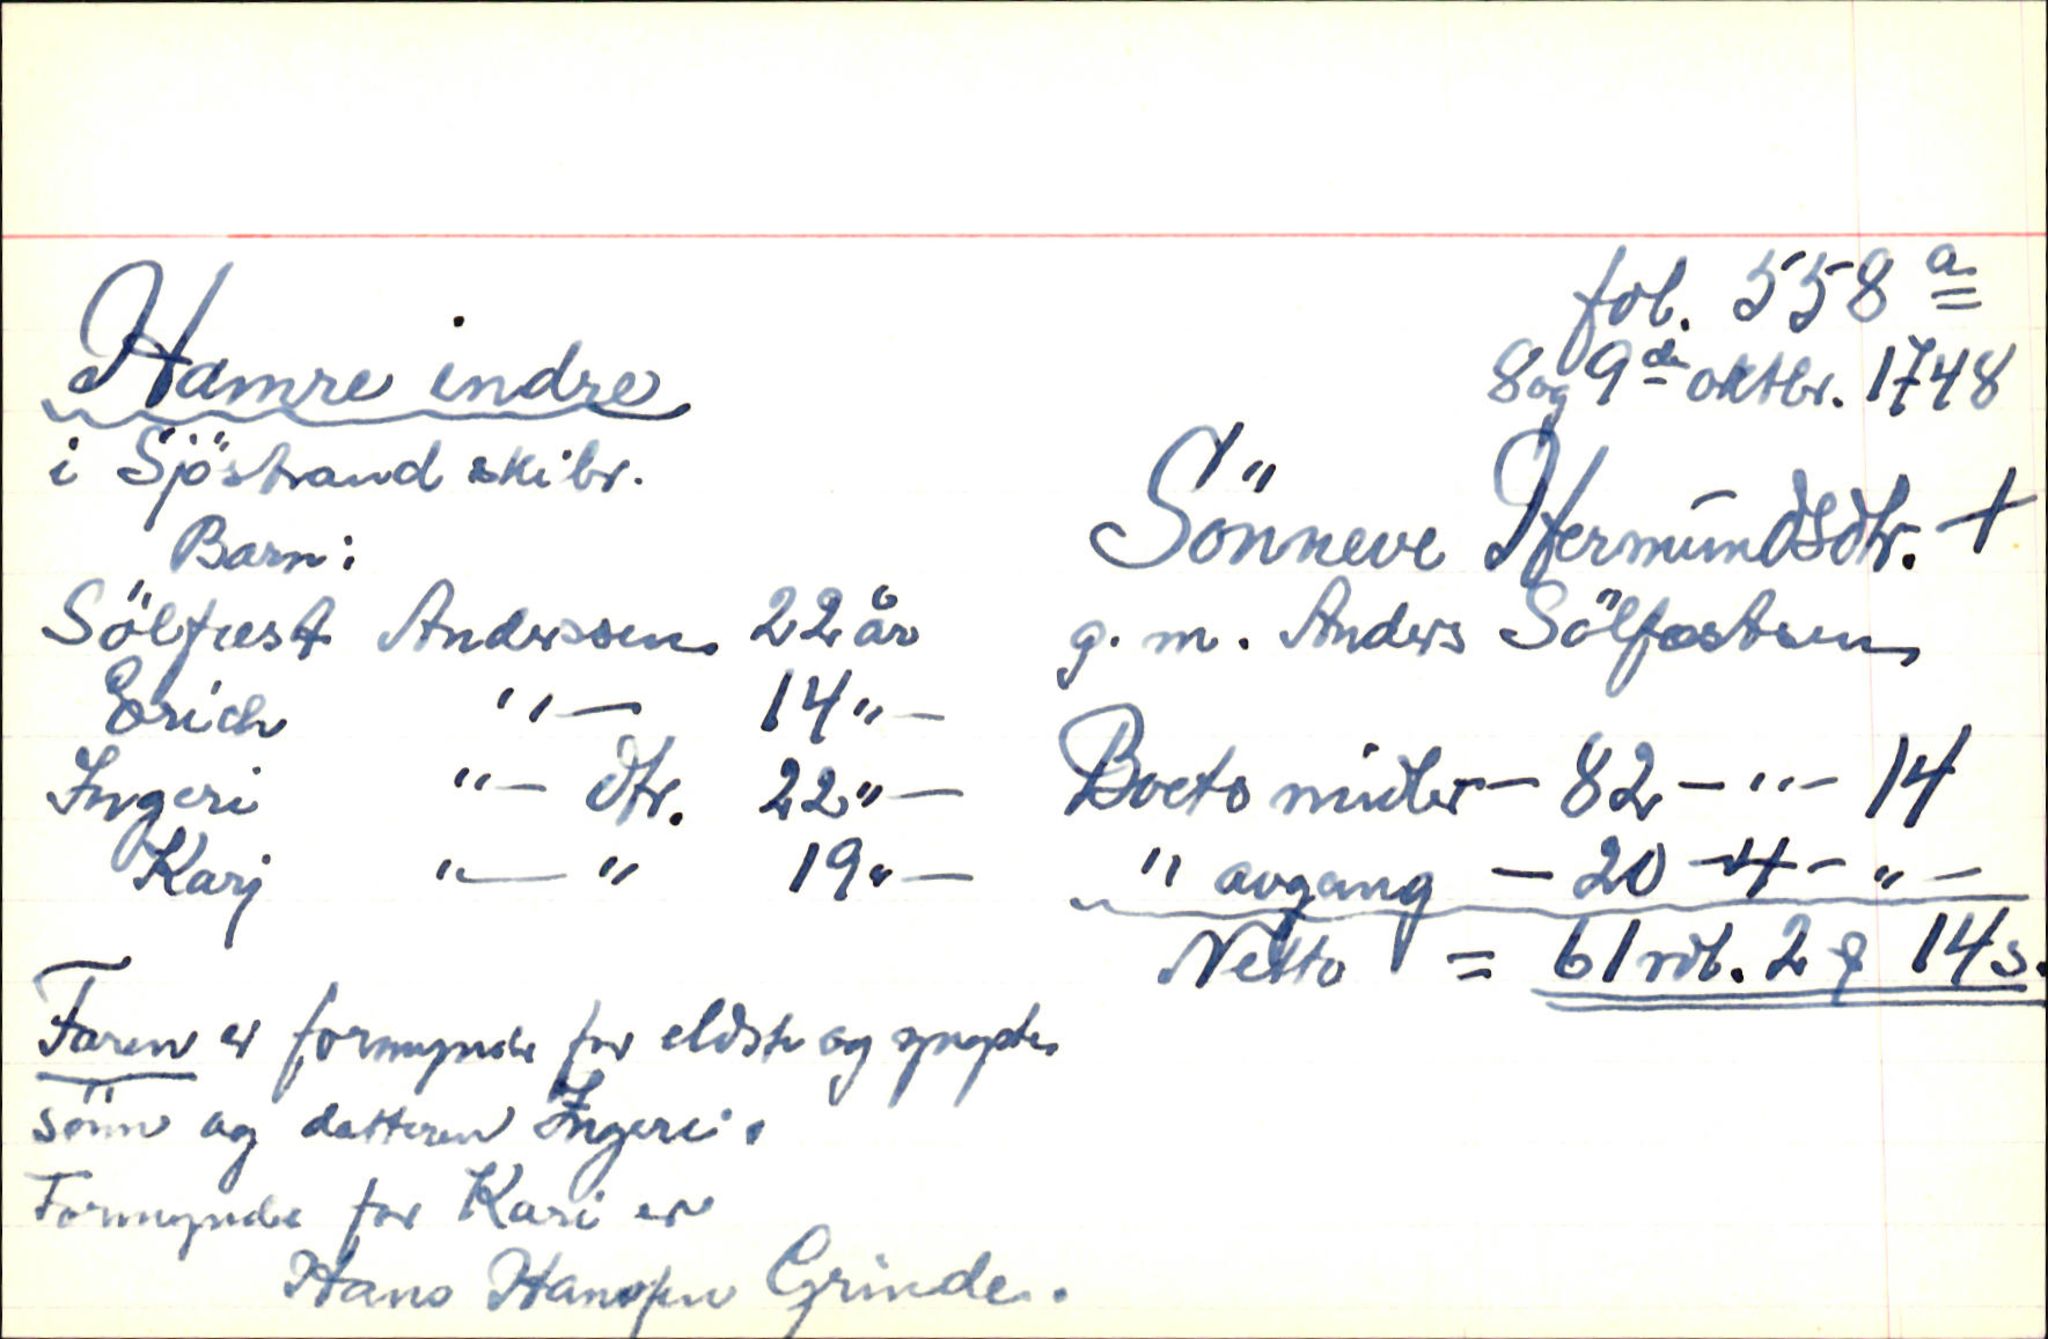 fol. 558 a
8 og 9 de oktbr. 1748
Hamre indre
i Sjöstrand skibr.
Sönneve Hermundsdtr. +
g. m. Anders Sölfæstsen
Barn:
Sölfæst Anderssen 22 år
Erich " — 14 " —
Ingeri " — dtr. 22 " —
Karj " — " 19 " —
Boets midler — 82 — " — 14
" avgang — 20 — 4 — " —
Netto = 61 rdl. 2 ʄ 14 s.
Faren er formynder for eldste og yngste
sönn og datteren Ingeri.
Formynder for Kari er
Hans Hansen Grinde.